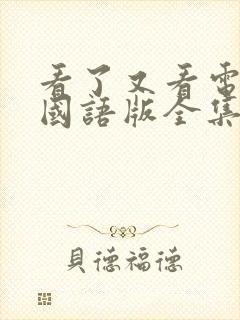 看了又看電
國語版全集
貝德福德